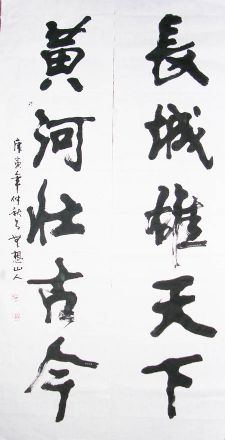 長城雄天下
黃河壯古今
庚寅年仲秋月無想山人